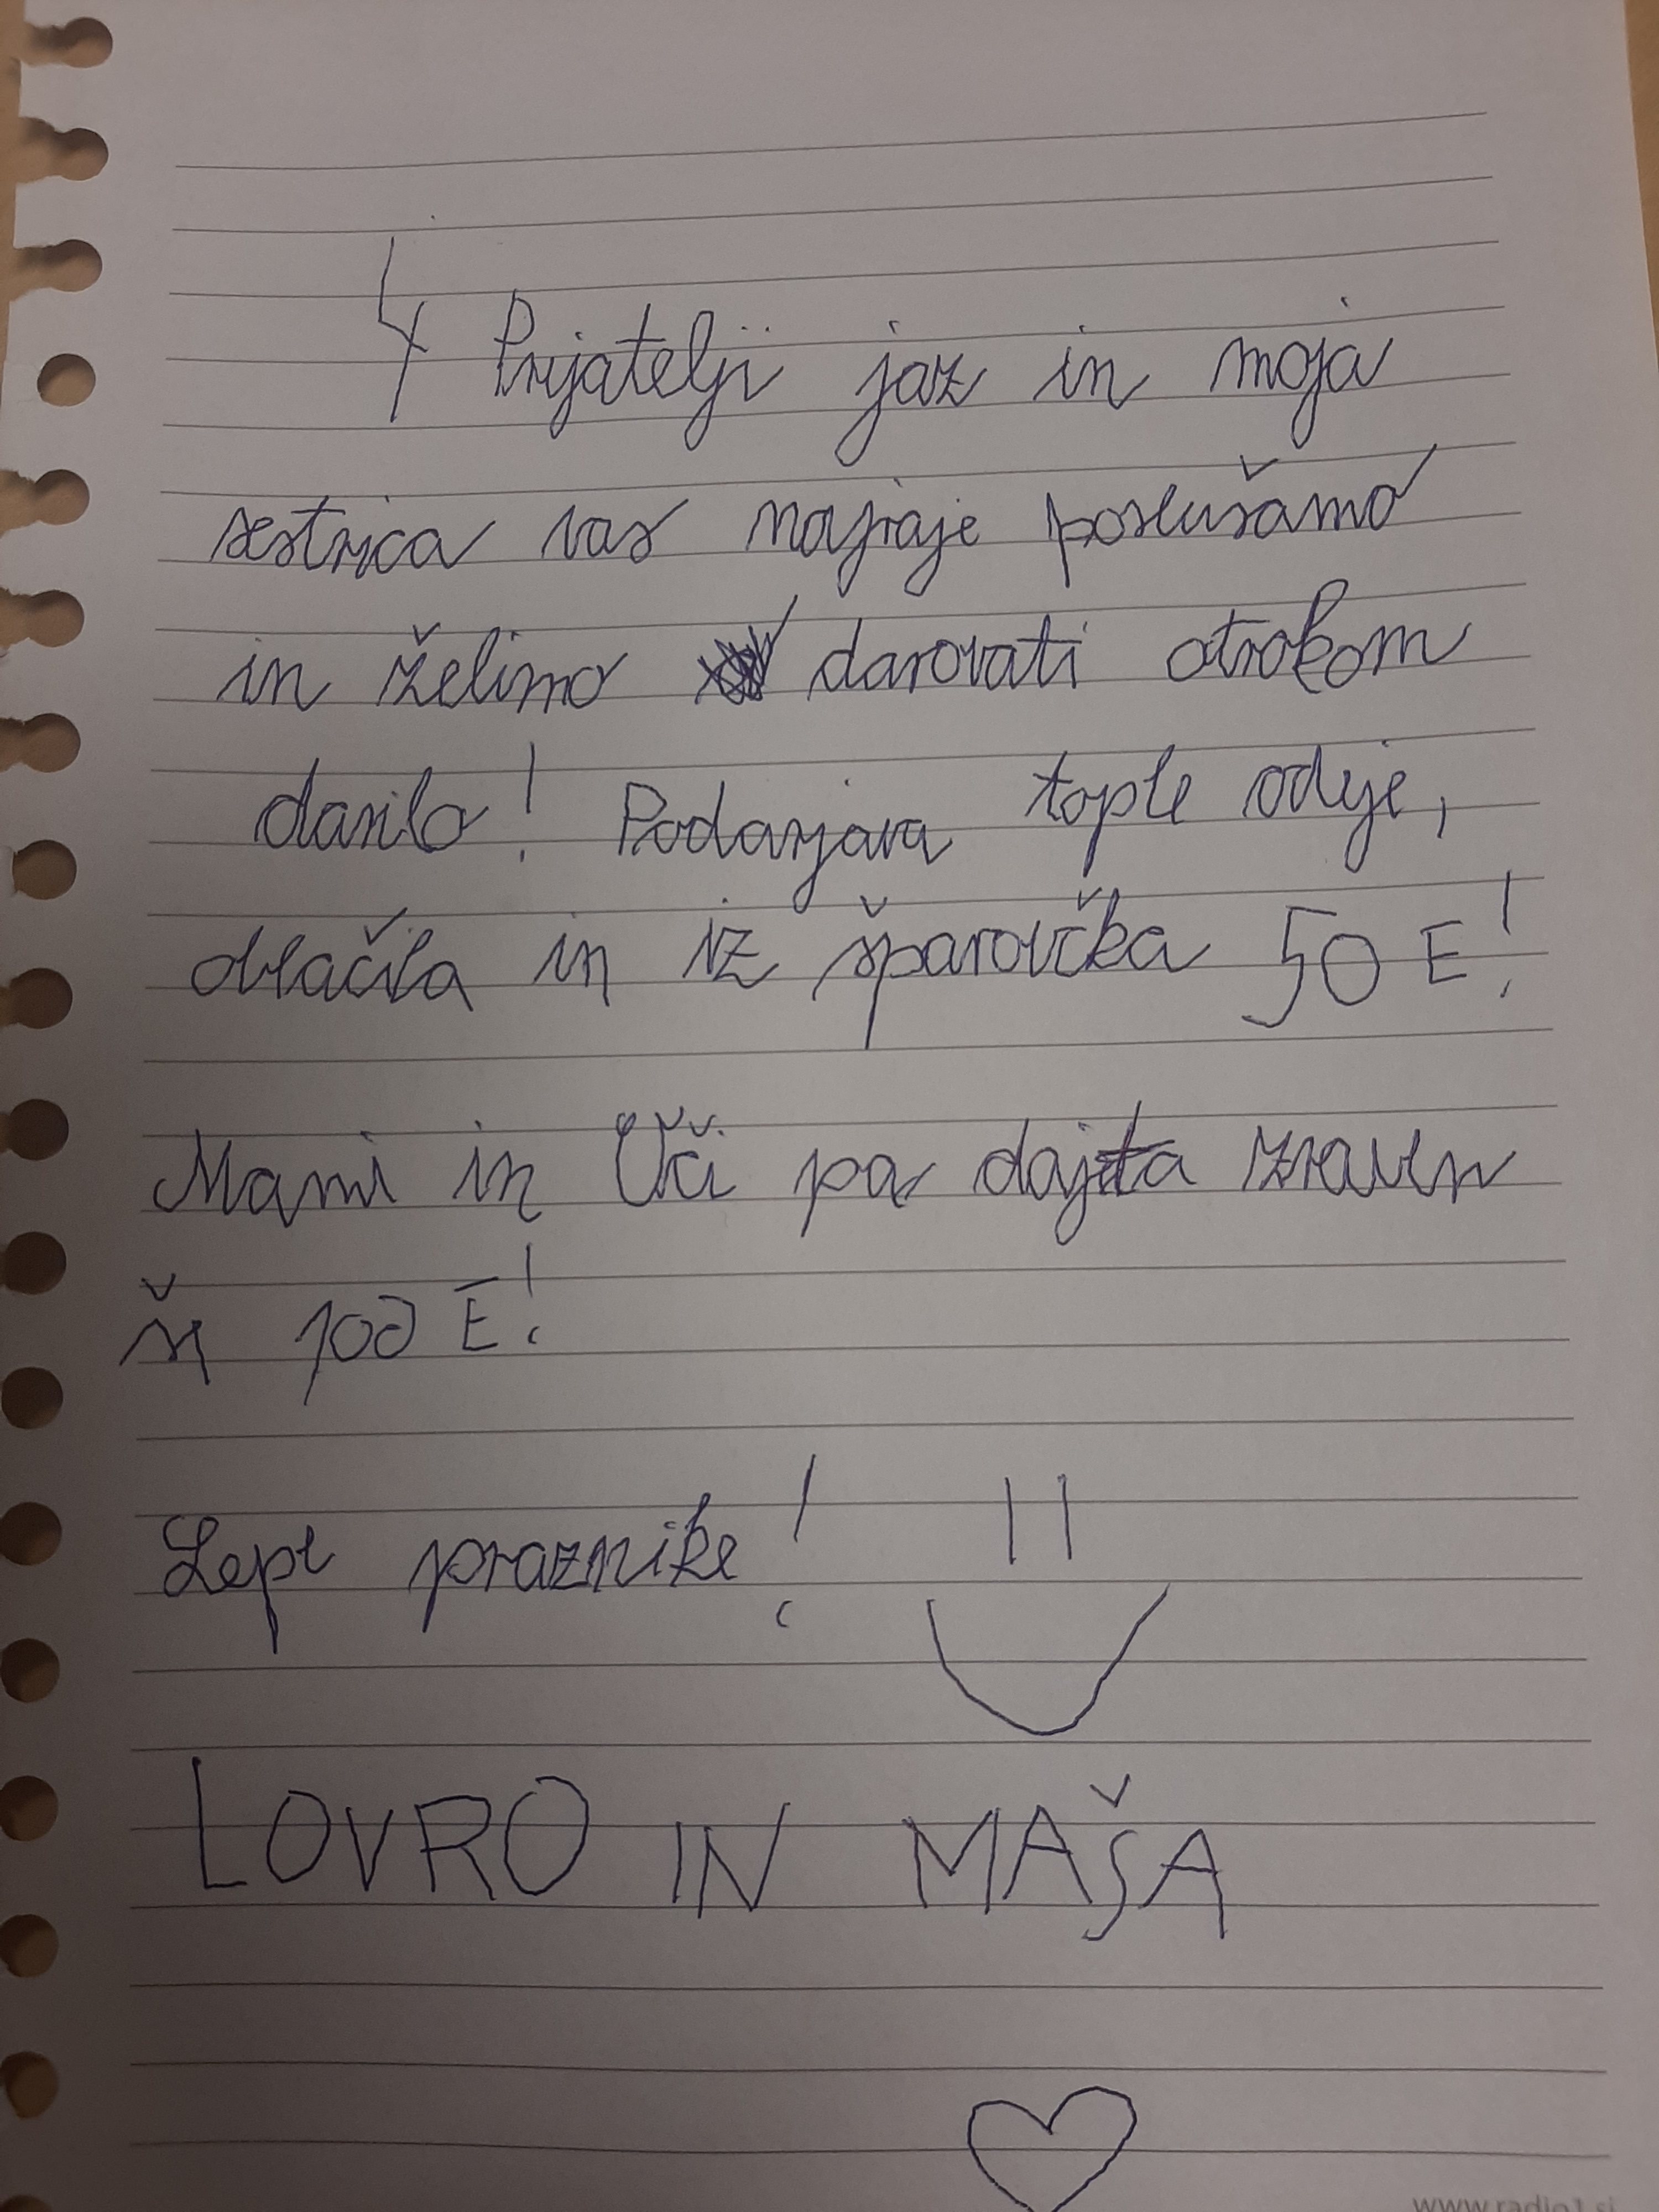 4 Prijatelji jaz in moja
sestrica vas najraje poslušamo
in želimo darovati otrokom
darilo! Podarjava tople odeje,
oblačila in iz šparovčka 50 E!
Mami in Oči pa dajeta zraven
še 100 E!
Lepe praznike!
LOVRO IN MAŠA
www.radio1.si